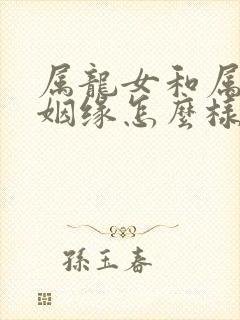 属龍女和属
姻缘怎麼樣
孫玉春